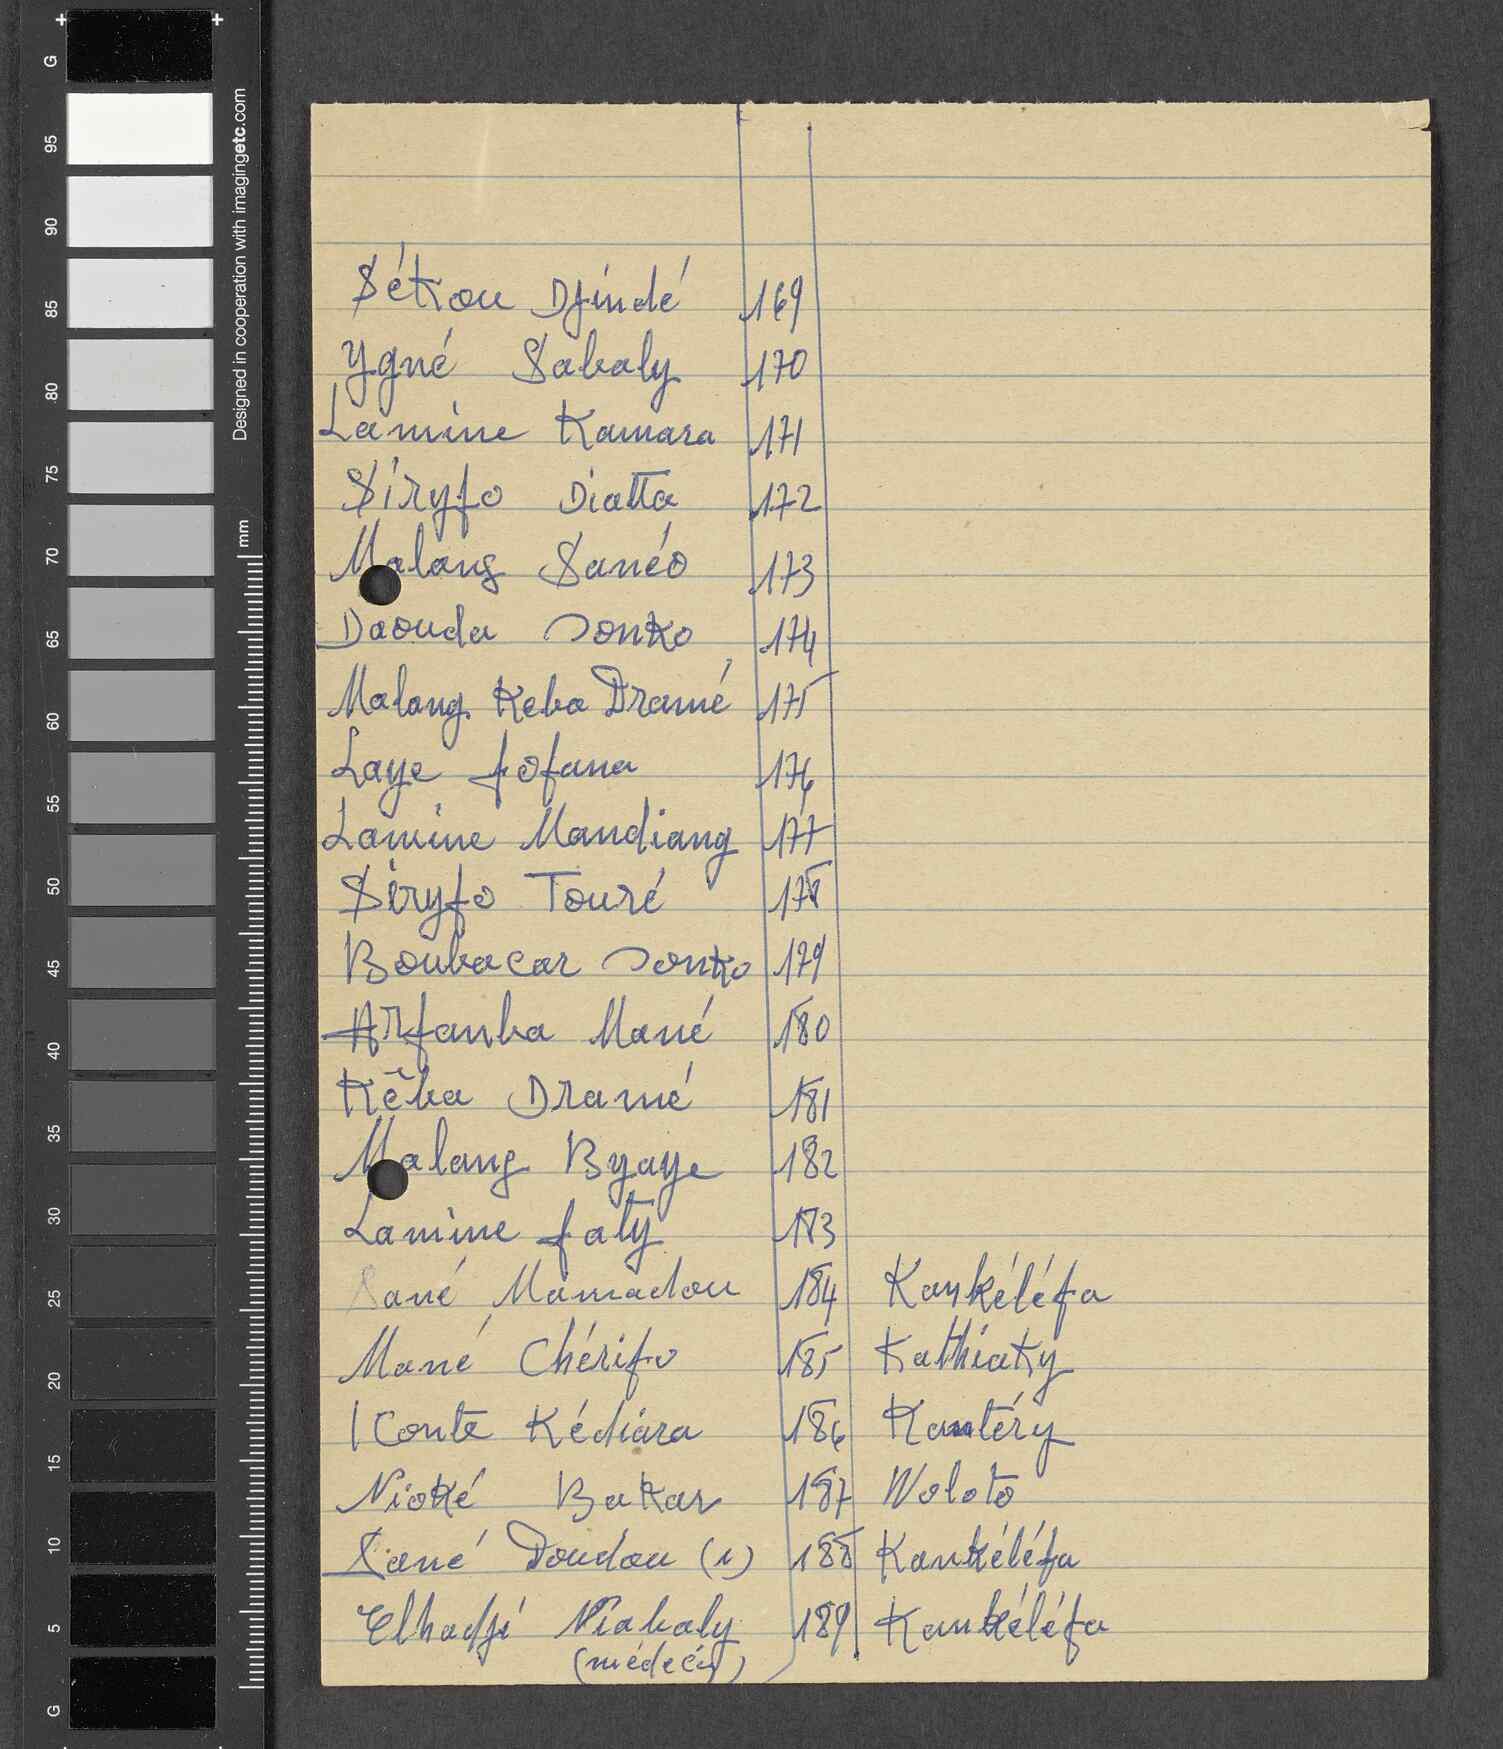 Sétou Djindé 169
Ygné Sabaly 170
Lamine Kamara 171
Siryfo Diatta 172
Malang Sanéo 173
Daouda Sonko 174
Malang Keba Dramé 175
Laye fofana 176
Lamine Mandiang 177
Siryfo Touré 178
Boubacar Sonko 179
Arfanba Mané 180
Kêba Dramé 181
Malang Byaye 182
Lamine faty 183
Sané Mamadou 184 Kankéléfa
Mané Chérifo 185 Kathiaky
Conte Kédiara 186 Kantéry
Nioké Bakar 187 Woloto
Sané Doudou (1) 188 Kankéléfa
Elhadji Niabaly 189 Kankéléfa
(médecin)
G
95
90
85
80
75
70
65
60
55
50
45
40
35
30
25
20
15
10
5
G
Designed in cooperation with imagingetc.com
mm